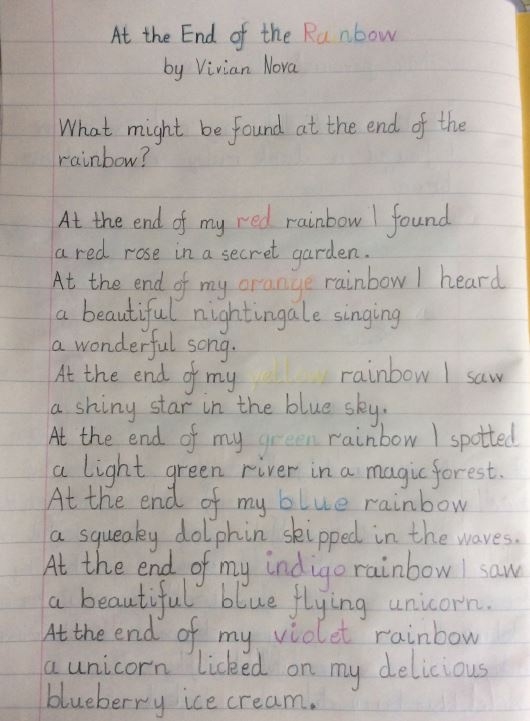 At the End of the Rainbow
by Vivian Nova
What might be found at the end of the
rainbow?
At the end of my red rainbow I found
a red rose in a secret garden.
At the end of my orange rainbow I heard
a beautiful nightingale singing
a wonderful song.
At the end of my yellow rainbow I saw
a shiny star in the blue sky.
At the end of my green rainbow I spotted
a light green river in a magic forest.
At the end of my blue rainbow
a squeaky dolphin skipped in the waves.
At the end of my indigo rainbow I saw
a beautiful blue flying unicorn.
At the end of my violet rainbow
a unicorn licked on my delicious
blueberry ice cream.